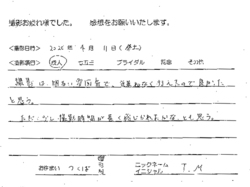 撮影お疲れ様でした。 感想をお願いいたします。
<撮影日時> 2025年 4月 11日 (
成人 七五三 ブライダル その他
撮影は、明るい雰囲気で、気兼ねなく行えたので良かった
と思う。
ただ、少し撮影時間が長く感じられたかな、とも思う。
お住まい つくば ニックネーム
イニシャル T.M